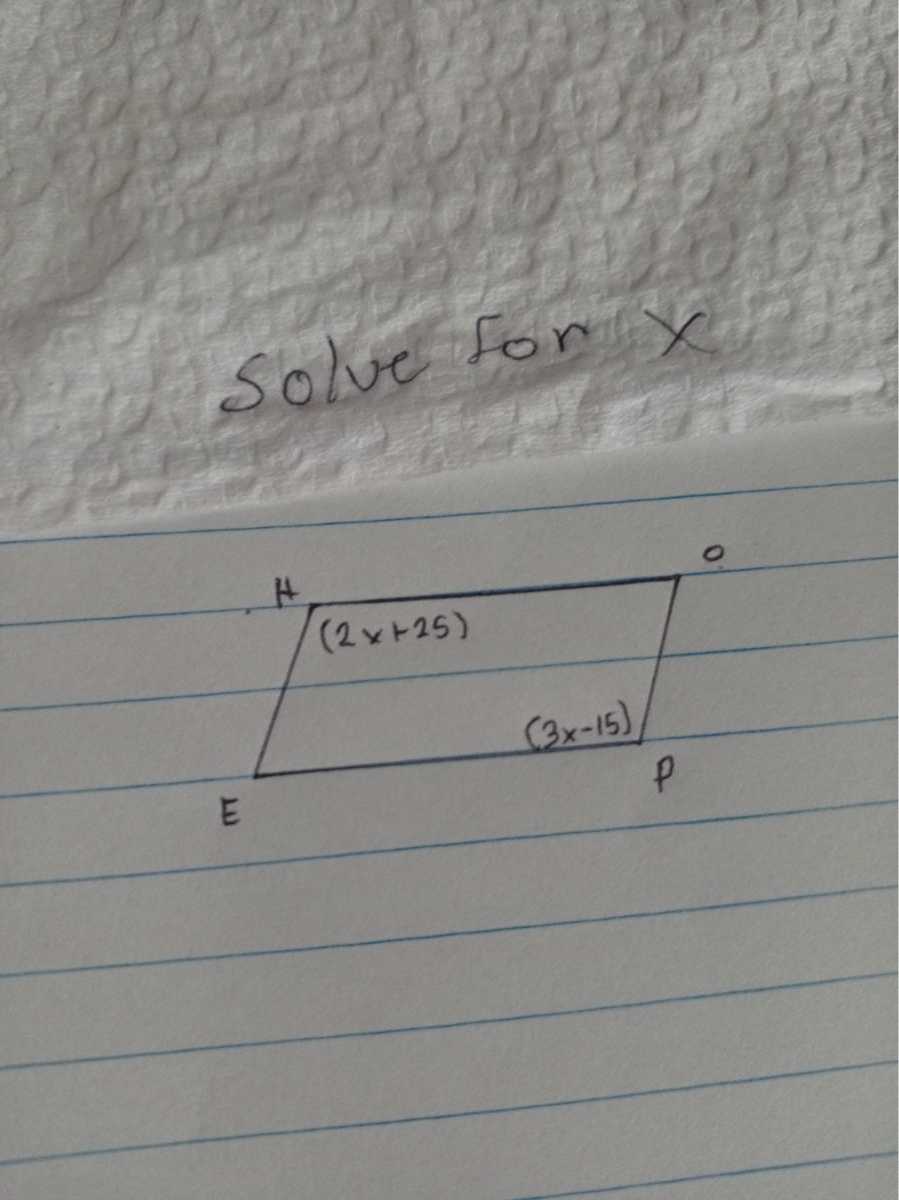 Solve for x
H
O
(2x+25)
(3x-15)
E
P